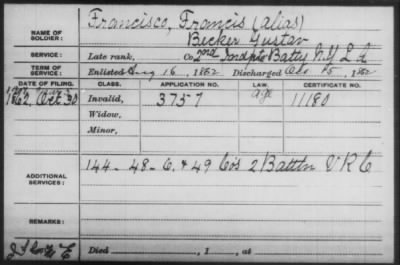 NAME OF SOLDIER: Francisco, Francis (alias)
Becker Gustav
SERVICE: Late rank, Co. 2nd Indpte Batty N.Y. L. A
TERM OF SERVICE: Enlisted Aug 16, 1862 Discharged 15, 1862
DATE OF FILING. CLASS. APPLICATION NO. LAW. CERTIFICATE NO.
1862, Oct. 30 Invalid, 3757 age 11180
Widow,
Minor,
ADDITIONAL SERVICES: 144 - 48 - C. & 49 Cos 2 Battln V R C
REMARKS:
Died , 1 , at